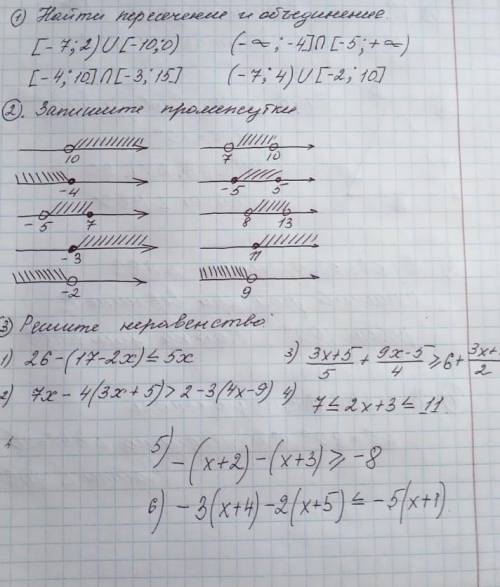 ① Найти пересечение и объединение.
[-7; 2) ∪ [-10; 0)   (-∞; -4] ∩ [-5; +∞)
[-4; 10] ∩ [-3; 15]   (-7; 4) ∪ [-2; 10]
②. Запишите промежутки.
10   7 10
-4   -5 5
-5 7   8 13
-3   11
-2   9
③ Решите неравенство:
1) 26-(17-2x) ≤ 5x   3) (3x+5)/5 + (9x-5)/4 ≥ 6+ (3x+)/2
2) 7x - 4(3x+5) > 2-3(4x-9)   4) 7 ≤ 2x+3 ≤ 11.
5) -(x+2)-(x+3) ≥ -8
6) -3(x+4)-2(x+5) ≤ -5(x+1)